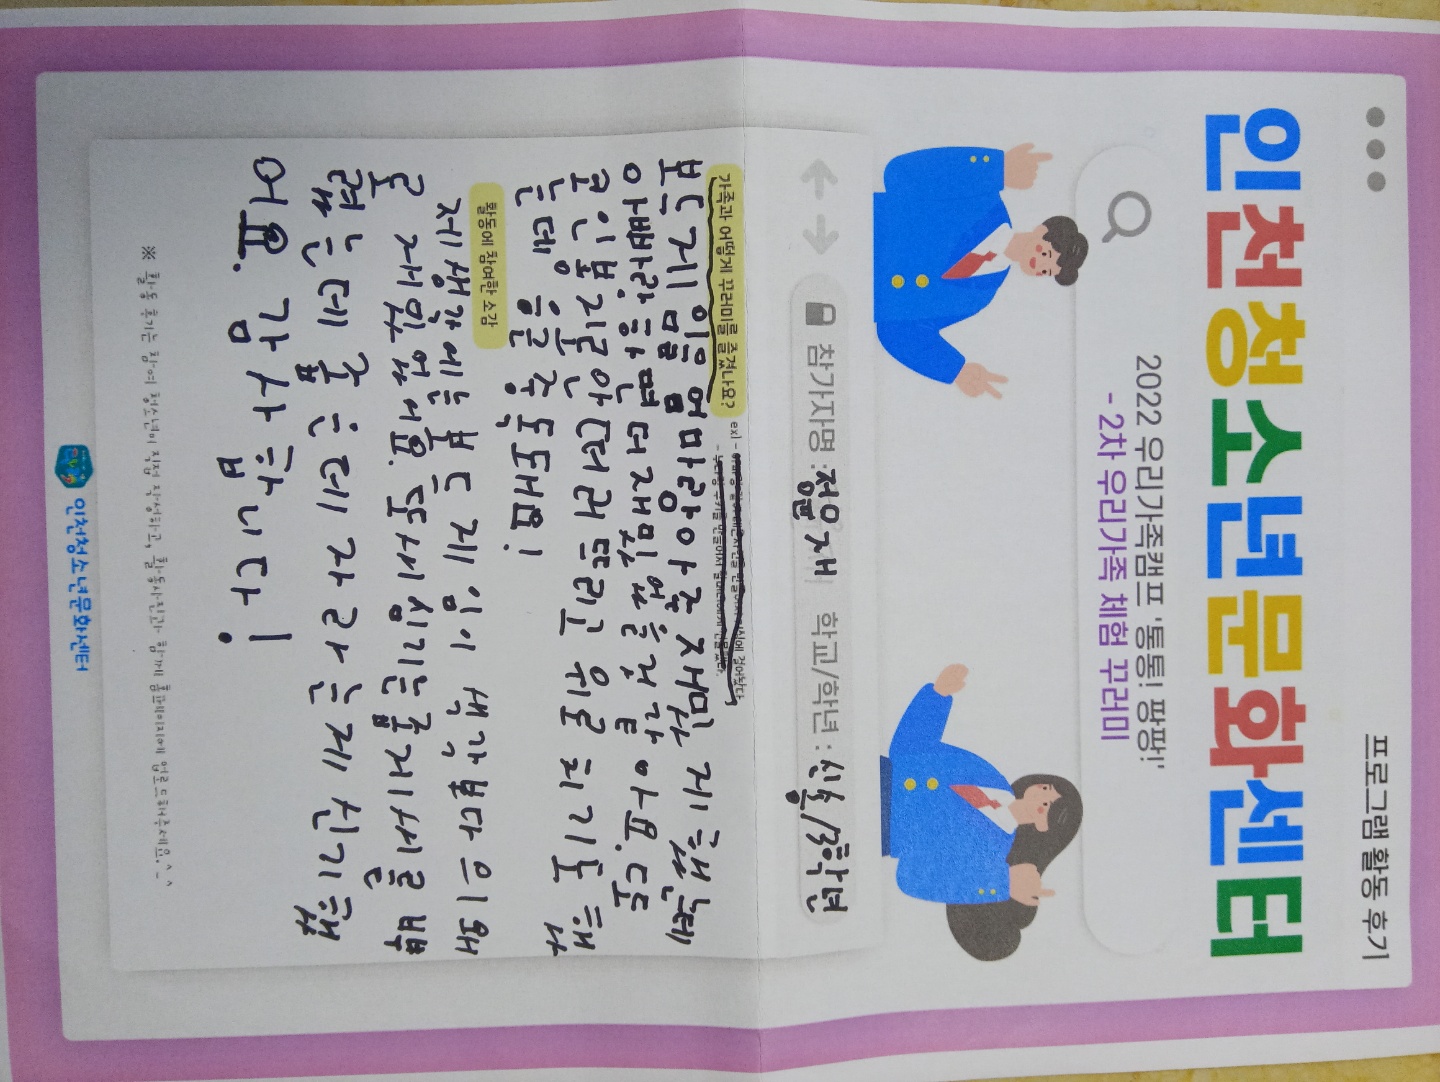 프로그램 활동 후기
인천청소년문화센터
2022 우리가족캠프 '통통! 팡팡!'
- 2차 우리가족 체험 꾸러미
참가자명 : 정우재 학교/학년 : 신촌/3학년
가족과 어떻게 꾸러미를 즐겼나요? ex) -
보드게임을 엄마랑 아주 재미나게 했는데
아빠랑 하면 더 재밌었을 것 같아요. 또
코인볼 지른 안 떠러뜨리고 위로 튀기도 해 봤
는데 을 중독돼요!
활동에 참여한 소감
제 생각에는 보드게임이 생각보다 의외
로 재밌었어요. 또 새싱기는 줄게 서를 뿌
렸는데 줄은데 자라는게 신기했
어요. 감사합니다!
※ 활동 후기는 참여 청소년이 직접 작성하고, 활동사진과 함께 홈페이지에 업로드해주세요.^_^
인천청소년문화센터